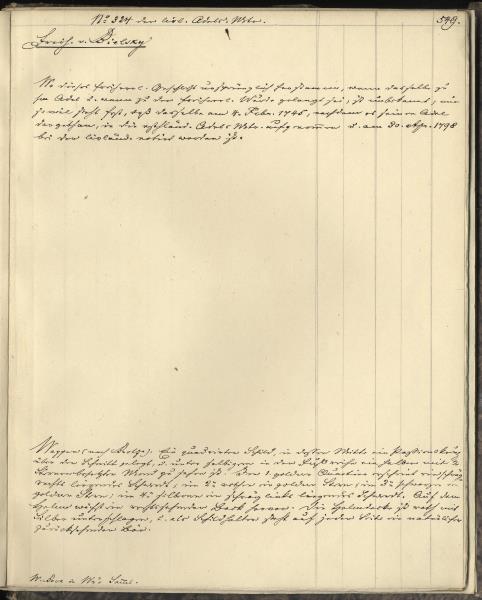 No 324 der livl. Adels-Matr.
549.
Freih. v. Bielsky
Wo dieses freiherrl. Geschlecht ursprünglich herstamme, wann dasselbe zu
dem Adel u. wann zu der freiherrl. Würde gelangt sei, ist unbekannt, nur
so viel steht fest, daß dasselbe am 4. Febr. 1746, nachdem es seinen Adel
dargethan, in die esthländ. Adels-Matr. aufgenommen u. am 20. 1798
bei der livländ. notirt worden ist.
Wappen: (nach ). Ein quadrirter Schild, in dessen Mitte ein
über den Schnitt gelegt, u. unter selbigem in dem ein halber mit
Sternen besetzter Mond zu sehen ist. Im 1. goldnen Quartier erscheint ein
rechts liegendes Schwerdt; im 2t rothen ein goldner Stern; im 3t schwarzen ein
goldner Stern; im 4t silbernen ein schräg links liegendes Schwerdt. Auf dem
Helm wächst ein rechtssehender hervor. Die Helmdecke ist roth mit
Silber unterschlagen, u. als Schildhalter steht auf jeder Seite ein natürlicher
zurücksehender Bär.